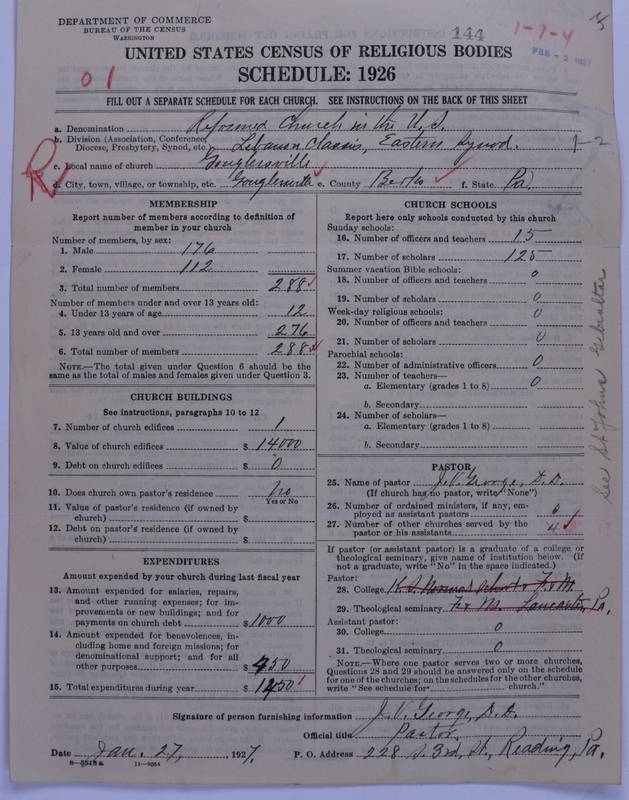 DEPARTMENT OF COMMERCE
BUREAU OF THE CENSUS
WASHINGTON
144
1-7-4
FEB - 2 1927
UNITED STATES CENSUS OF RELIGIOUS BODIES
SCHEDULE: 1926
01
FILL OUT A SEPARATE SCHEDULE FOR EACH CHURCH. SEE INSTRUCTIONS ON THE BACK OF THIS SHEET
a. Denomination Reformed Church in the U.S.
b. Division (Association, Conference, Diocese, Presbytery, Synod, etc.) Lebanon Classis, Eastern Synod. 1-2
c. Local name of church Gouglersville
R
d. City, town, village, or township, etc. Gouglersville e. County Berks f. State Pa.
MEMBERSHIP
Report number of members according to definition of
member in your church
Number of members, by sex:
1. Male 176
2. Female 112
3. Total number of members 288
Number of members under and over 13 years old:
4. Under 13 years of age 12
5. 13 years old and over 276
6. Total number of members 288
NOTE.—The total given under Question 6 should be the
same as the total of males and females given under Question 3.
CHURCH BUILDINGS
See instructions, paragraphs 10 to 12
7. Number of church edifices 1
8. Value of church edifices $ 14000
9. Debt on church edifices $ 0
10. Does church own pastor's residence No
Yes or No
11. Value of pastor's residence (if owned by
church) $
12. Debt on pastor's residence (if owned by
church) $
EXPENDITURES
Amount expended by your church during last fiscal year
13. Amount expended for salaries, repairs,
and other running expenses; for im-
provements or new buildings; and for
payments on church debt $ 1000
14. Amount expended for benevolences, in-
cluding home and foreign missions; for
denominational support; and for all
other purposes $ 450
15. Total expenditures during year $ 1450
CHURCH SCHOOLS
Report here only schools conducted by this church
Sunday schools:
16. Number of officers and teachers 15
17. Number of scholars 125
Summer vacation Bible schools:
18. Number of officers and teachers 0
19. Number of scholars 0
Week-day religious schools:
20. Number of officers and teachers 0
21. Number of scholars 0
Parochial schools:
22. Number of administrative officers 0
23. Number of teachers—
a. Elementary (grades 1 to 8) 0
b. Secondary
24. Number of scholars—
a. Elementary (grades 1 to 8)
b. Secondary
PASTOR
25. Name of pastor J.V. George, D.D.
(If church has no pastor, write "None")
26. Number of ordained ministers, if any, em-
ployed as assistant pastors 0
27. Number of other churches served by the
pastor or his assistants 4
If pastor (or assistant pastor) is a graduate of a college or
theological seminary, give name of institution below. (If
not a graduate, write "No" in the space indicated.)
Pastor:
28. College K.S. Normal School & F. & M.
29. Theological seminary F. & M. Lancaster, Pa.
Assistant pastor:
30. College 0
31. Theological seminary 0
NOTE.—Where one pastor serves two or more churches,
Questions 28 and 29 should be answered only on the schedule
for one of the churches; on the schedules for the other churches,
write "See schedule for church."
See St Johns Gibraltar
Signature of person furnishing information J.V. George, D.D.
Official title Pastor.
Date Jan. 27, 1927. P. O. Address 228 S. 3rd, St., Reading, Pa.
8-5518a 11-9054